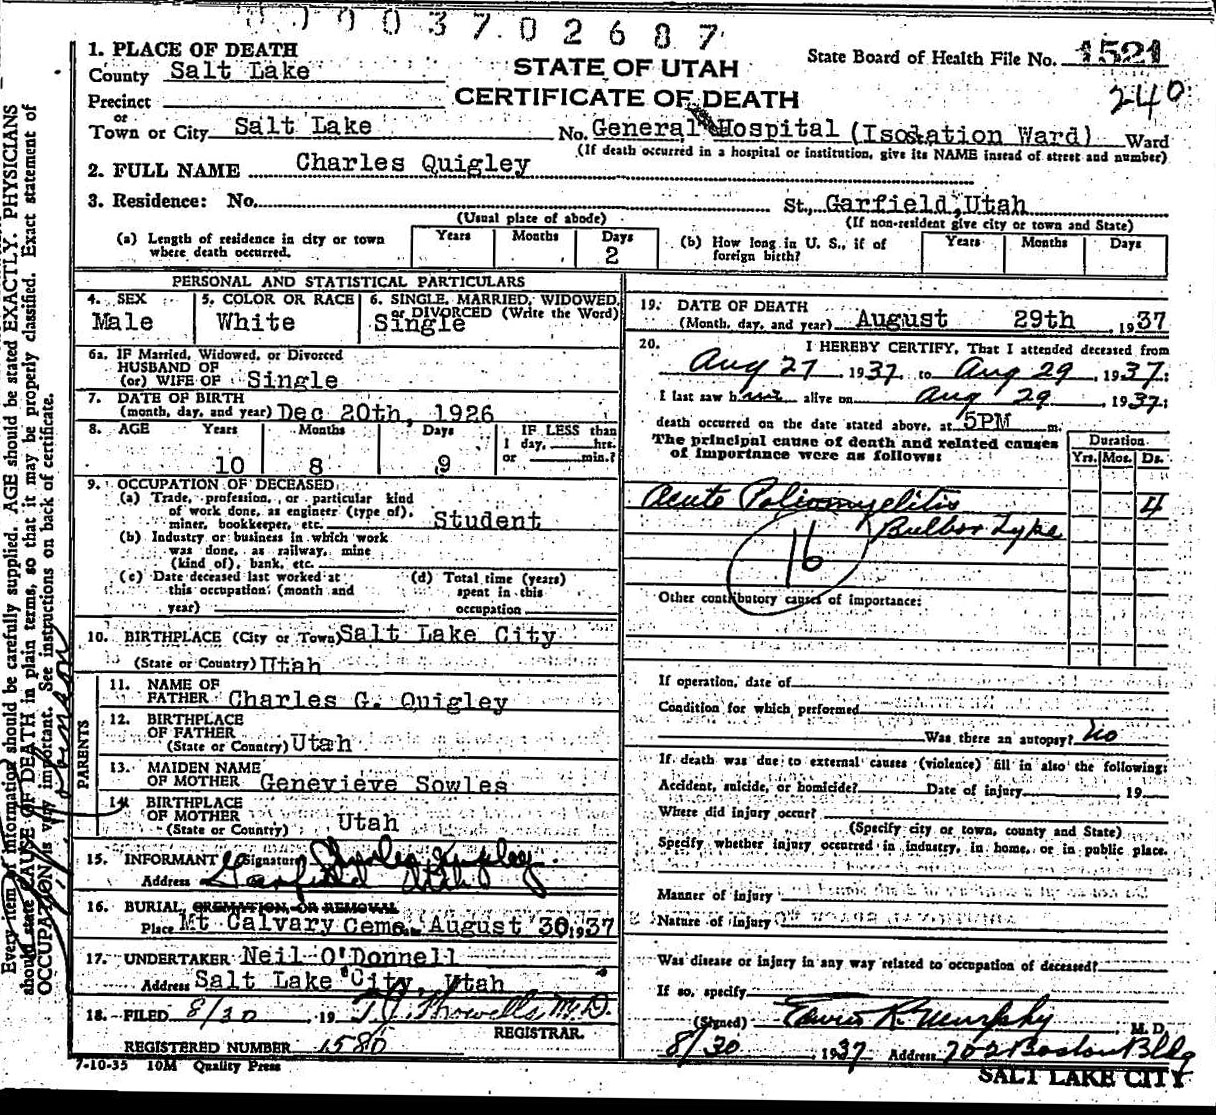 0 0 0 0 3 7 0 2 6 8 7
1. PLACE OF DEATH
County Salt Lake
STATE OF UTAH
State Board of Health File No. 1521
Precinct
CERTIFICATE OF DEATH
240
or
Town or City Salt Lake No. General Hospital (Isolation Ward) Ward
(If death occurred in a hospital or institution, give its NAME instead of street and number)
2. FULL NAME Charles Quigley
3. Residence: No. St., Garfield, Utah
(Usual place of abode) (If non-resident give city or town and State)
(a) Length of residence in city or town where death occurred. Years Months Days 2
(b) How long in U. S., if of foreign birth? Years Months Days
PERSONAL AND STATISTICAL PARTICULARS
4. SEX Male
5. COLOR OR RACE White
6. SINGLE, MARRIED, WIDOWED, or DIVORCED (Write the Word) Single
6a. IF Married, Widowed, or Divorced
HUSBAND OF
(or) WIFE OF Single
7. DATE OF BIRTH
(month, day, and year) Dec 20th, 1926
8. AGE Years Months Days IF LESS than
1 day, hrs.
10 8 9 or min.?
9. OCCUPATION OF DECEASED:
(a) Trade, profession, or particular kind
of work done, as engineer (type of),
miner, bookkeeper, etc. Student
(b) Industry or business in which work
was done, as railway, mine
(kind of), bank, etc.
(c) Date deceased last worked at
this occupation: (month and
year)
(d) Total time (years)
spent in this
occupation
10. BIRTHPLACE (City or Town) Salt Lake City
(State or Country) Utah
PARENTS
11. NAME OF
FATHER Charles G. Quigley
12. BIRTHPLACE
OF FATHER
(State or Country) Utah
13. MAIDEN NAME
OF MOTHER Genevieve Sowles
14. BIRTHPLACE
OF MOTHER
(State or Country) Utah
15. INFORMANT (Signature) Charles Quigley
Address Garfield Utah
16. BURIAL, CREMATION, OR REMOVAL
Place Mt Calvary Ceme. August 30, 1937
17. UNDERTAKER Neil O'Donnell
Address Salt Lake City, Utah
18. FILED 8/30 19 T. J. Howells M.D.
REGISTRAR.
REGISTERED NUMBER 1580
7-10-35 10M Quality Press
19. DATE OF DEATH
(Month, day, and year) August 29th, 1937
20. I HEREBY CERTIFY, That I attended deceased from
Aug 27, 1937, to Aug 29, 1937;
I last saw him alive on Aug 29, 1937;
death occurred on the date stated above, at 5PM m.
The principal cause of death and related causes
of importance were as follows:
Duration
Yrs. Mos. Ds.
Acute Poliomyelitis 4
Bulbar Type
16
Other contributory causes of importance:
If operation, date of
Condition for which performed
Was there an autopsy? No
If death was due to external causes (violence) fill in also the following:
Accident, suicide, or homicide? Date of injury 19
Where did injury occur?
(Specify city or town, county and State)
Specify whether injury occurred in industry, in home, or in public place.
Manner of injury
Nature of injury
Was disease or injury in any way related to occupation of deceased?
If so, specify
(Signed) Edwin R. Murphy, M. D.
8/30 1937 Address 702 Boston Bldg
SALT LAKE CITY
Every item of information should be carefully supplied. AGE should be stated EXACTLY. PHYSICIANS
should state CAUSE OF DEATH in plain terms, so that it may be properly classified. Exact statement of
OCCUPATION is very important. See instructions on back of certificate.